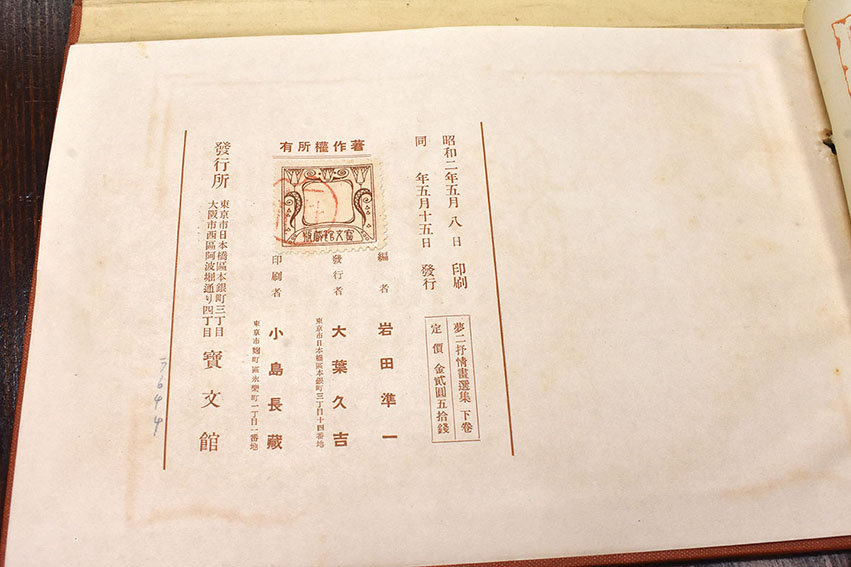 昭和二年五月八日 印刷
同 年五月十五日 發行
夢二抒情畫選集 下卷
定價 金貳圓五拾錢
著作權所有
寶文館藏版
編者 岩田準一
發行者 大葉久吉
東京市日本橋區本銀町三丁目十四番地
印刷者 小島長藏
東京市麹町區永樂町二丁目一番地
發行所
東京市日本橋區本銀町三丁目
大阪市西區阿波堀通り四丁目
寶文館